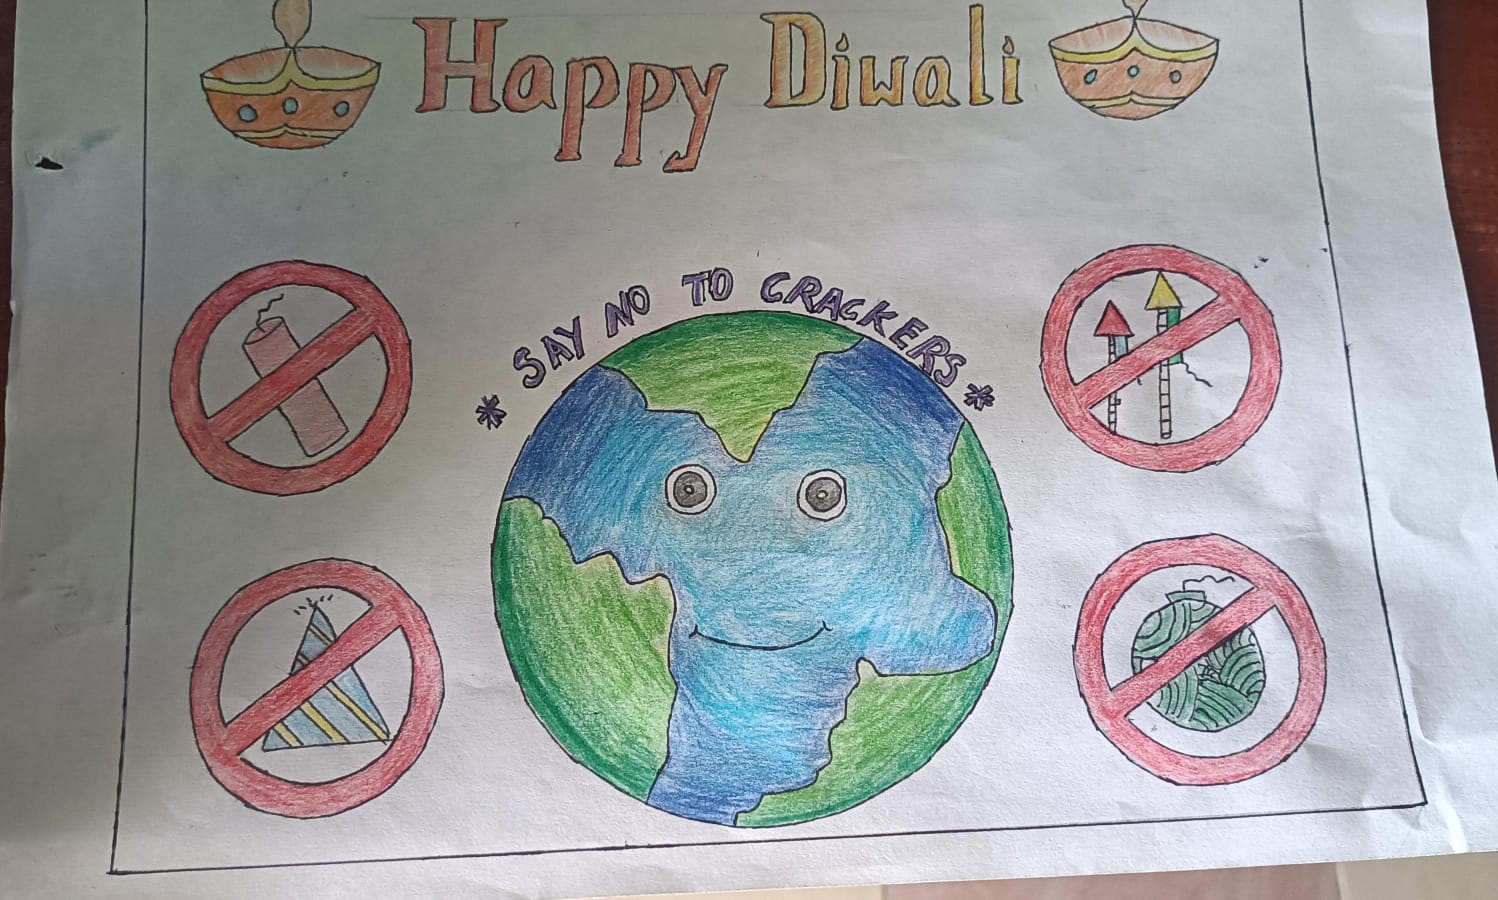 Happy Diwali
* SAY NO TO CRACKERS *